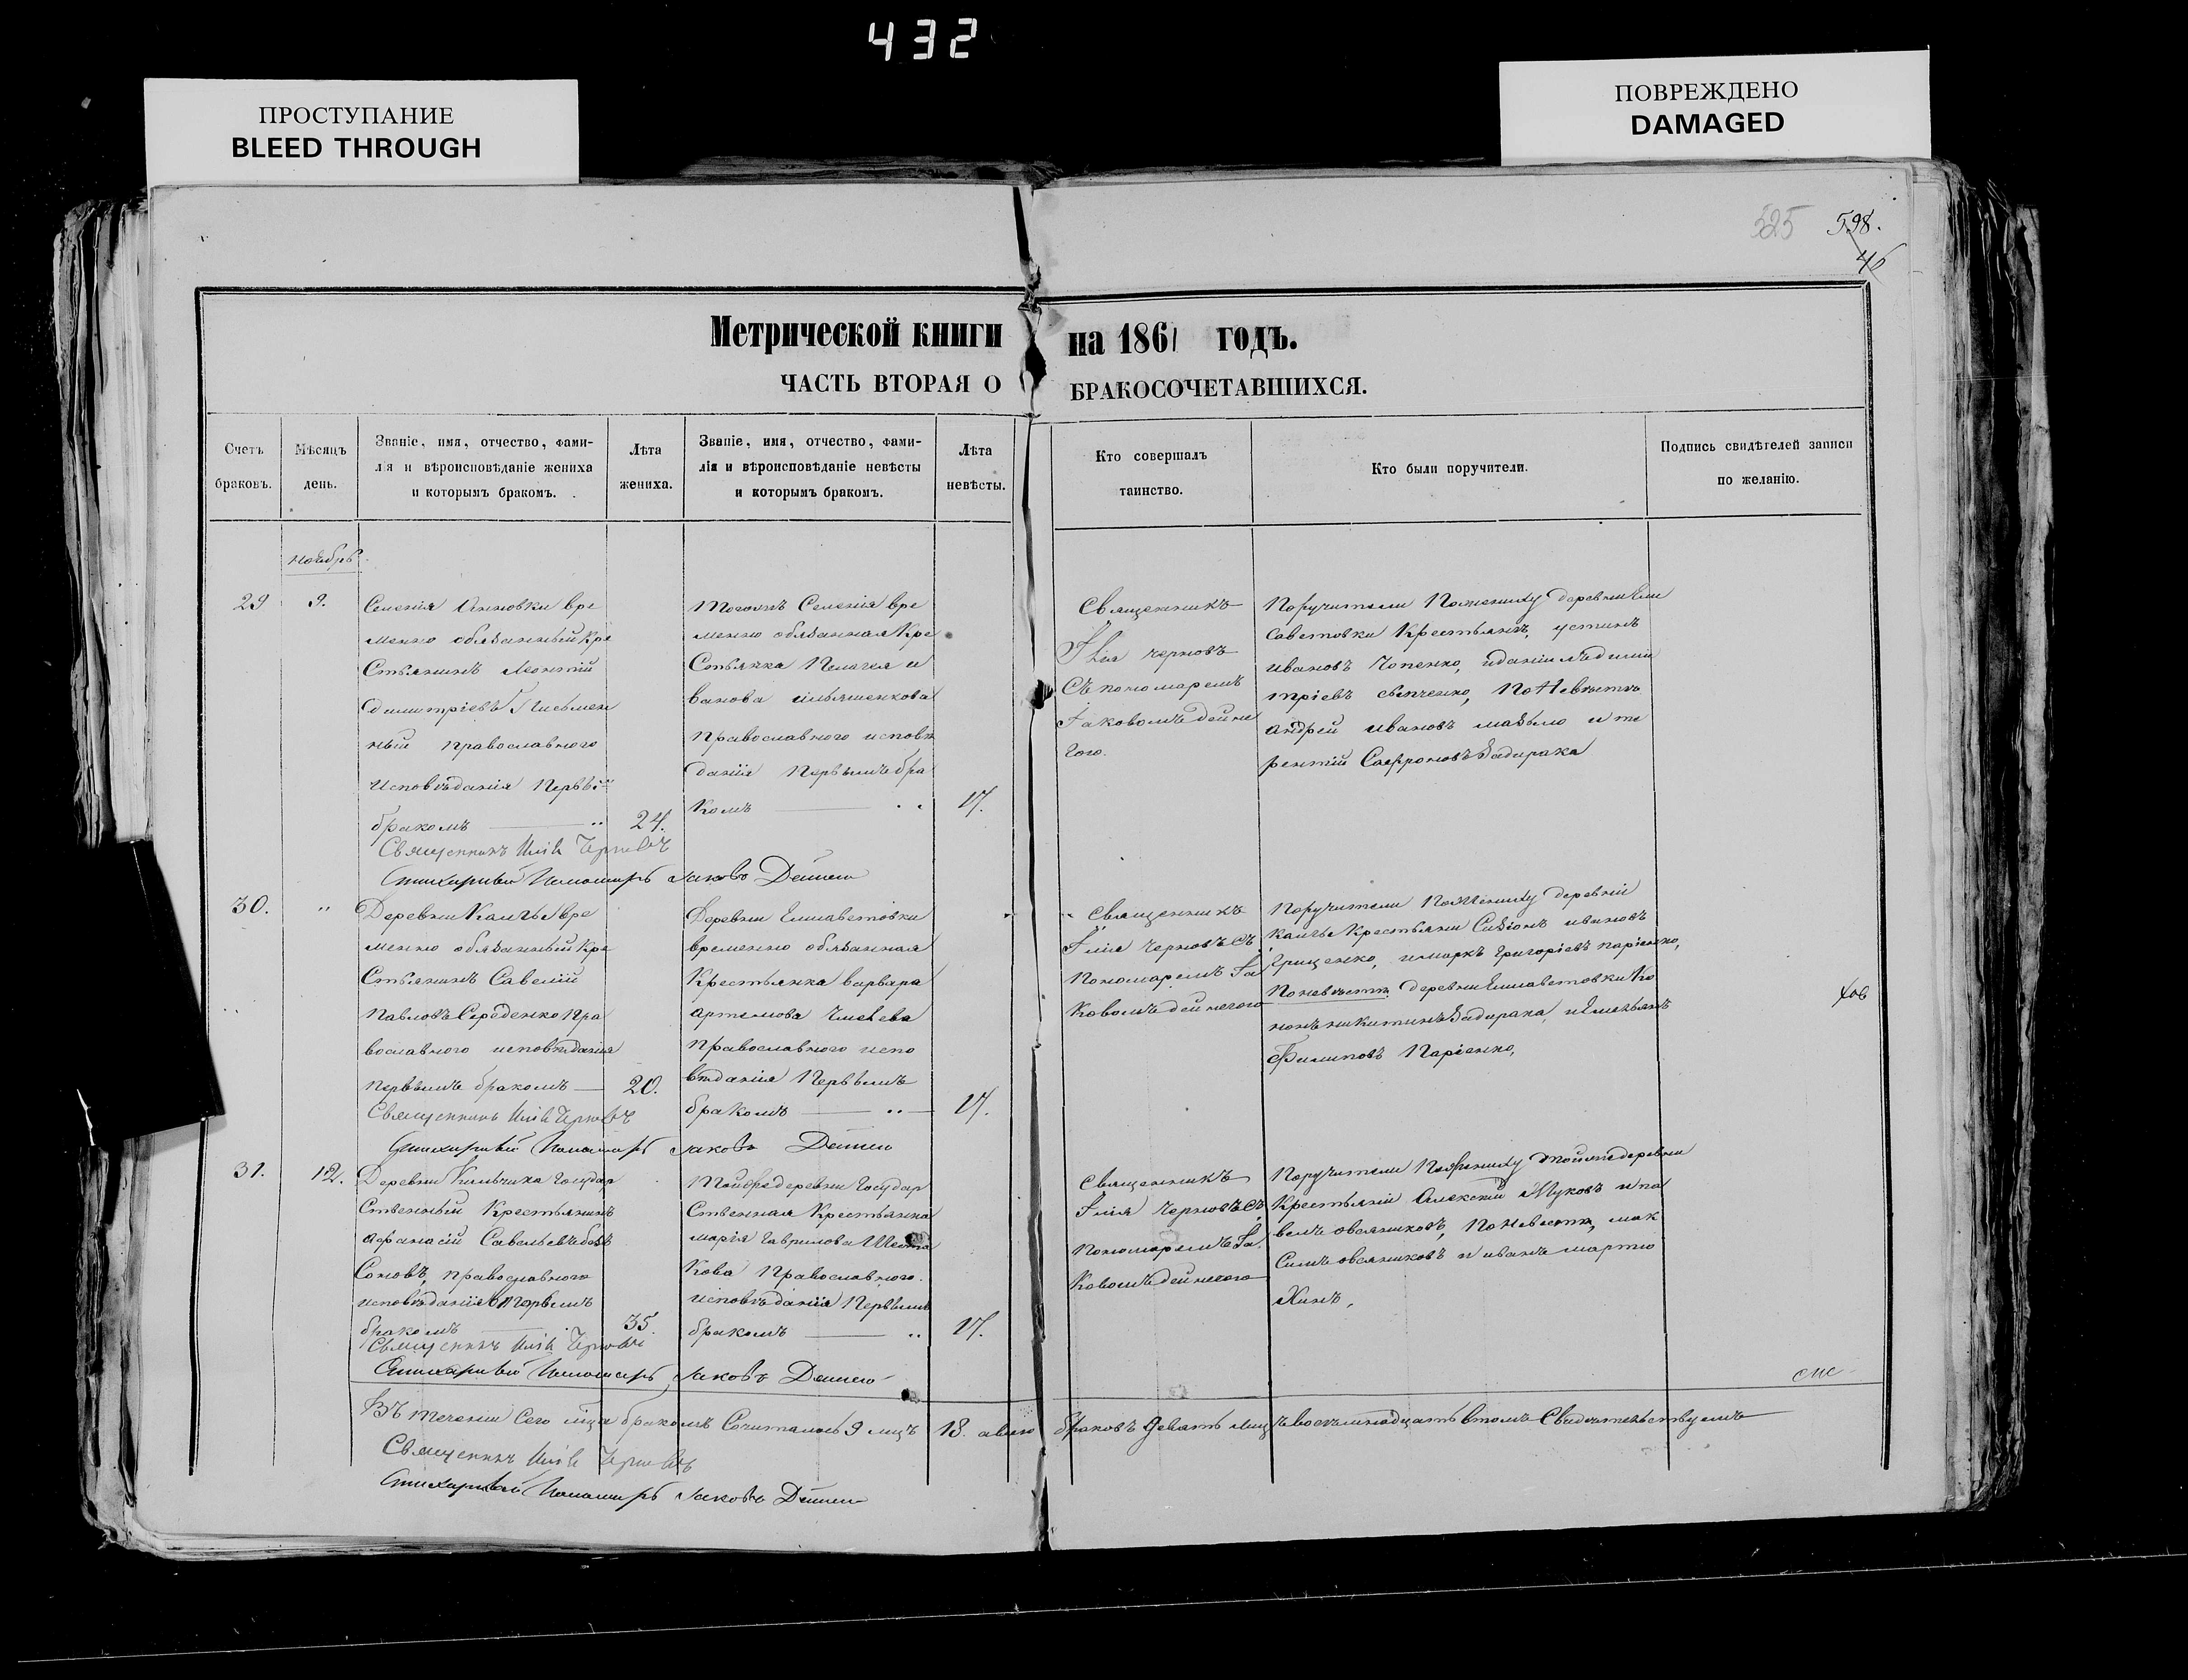 432
ПРОСТУПАНИЕ
BLEED THROUGH
ПОВРЕЖДЕНО
DAMAGED
525 598.
46
Метрической книги на 1861 годъ.
ЧАСТЬ ВТОРАЯ О БРАКОСОЧЕТАВШИХСЯ.
Счетъ
браковъ.
Мѣсяцъ
день.
Званіе, имя, отчество, фами-
лія и вѣроисповѣданіе жениха
и которымъ бракомъ.
Лѣта
жениха.
Званіе, имя, отчество, фами-
лія и вѣроисповѣданіе невѣсты
и которымъ бракомъ.
Лѣта
невѣсты.
Кто совершалъ
таинство.
Кто были поручители.
Подпись свидѣтелей записи
по желанію.
ноябрь
29 9.
Селенія Анновки вре
менно обязанный кре
стьянинъ Леонтій
димитріевъ Письмен
ный православного
исповѣданія Первы
бракомъ
24.
Тогожъ Селенія вре
менно обязанная Кре
стьянка Пелагея и
ванова
православного исповѣ
данія первымъ бра
комъ
17.
Священникъ
Илія черновъ
Съ пономаремъ
Іаковомъ дейне
гою.
Поручители По жениху деревни Ели
саветовки Крестьянъ, устинъ
ивановъ Чопенко, иданіилъ дими
тріевъ По Невѣстѣ
андрей ивановъ и те
рентій Сафроновъ Задирака
Священникъ Илія Черновъ
Стихарный Пономарь Іаковъ Дейнего
30. "
Деревни вре
менно обязанный Кре
стьянинъ Савелій
Павловъ Середенко Пра
вославного исповѣданія
первымъ бракомъ
20.
Деревни Елисаветовки
временно обязанная
Крестьянка варвара
артемова
Православного испо
вѣданія Первымъ
бракомъ
17.
Священникъ
Илія черновъ Съ
Пономаремъ Іа
ковомъ дейнегою
Поручители По Жениху деревни
Крестьяни ивановъ
Грищенко, имаркъ григоріевъ паріенко,
По невѣстѣ деревни Елисаветовки Ко
нонъ никитинъ Задирака, иЕмельянъ
Филиповъ Паріенко,
Священникъ Илія Черновъ
Стихарный Пономарь Іаковъ Дейнего
31. 12.
Деревни Кильчика Государ
ственный Крестьянинъ
афанасій Савельевъ
соновъ, православного
исповѣданія
бракомъ
35.
Тойже деревни Государ
ственная Крестьянка
марія Гаврилова
кова Православного
исповѣданія Первымъ
бракомъ
17.
Священникъ
Илія Черновъ Съ
Пономаремъ Іа
ковомъ дейнегою
Поручители По Жениху тойже деревни
Крестьяни Алексій Жуковъ и па
велъ овсяниковъ, По Невестѣ, мак
симъ овсяниковъ и иванъ мартю
хинъ,
Священникъ Илія Черновъ
Стихарный Пономарь Іаковъ Дейнего
Въ теченіи Сего мца бракомъ Сочиталось 9 лицъ 18. авсего браковъ девять лицъ восемьнадцать втомъ Свидѣтельствуемъ
Священникъ Илія Черновъ
Стихарный Пономарь Іаковъ Дейнего